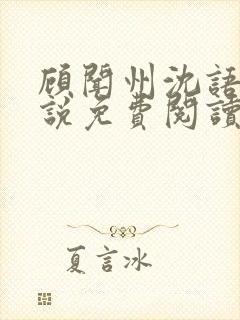 顾闻州沈語
説免費閱讀
夏言冰